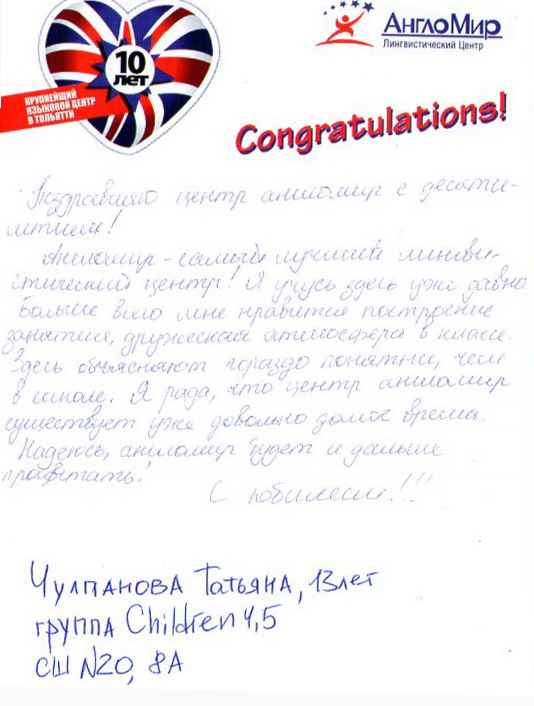 10
лет
КРУПНЕЙШИЙ
ЯЗЫКОВОЙ ЦЕНТР
В ТОЛЬЯТТИ
АнглоМир
Лингвистический Центр
Congratulations!
Поздравляю центр англомир с десяти-
летием!
Англомир - самый лучший лингви-
стический центр! Я учусь здесь уже давно
Больше всего мне нравится построение
занятия, дружеская атмосфера в классе.
Здесь объясняют гораздо понятнее, чем
в школе. Я рада, что центр англомир
существует уже довольно долгое время.
Надеюсь, англомир будет и дальше
процветать!
С юбилеем!!!
Чулпанова Татьяна, 13 лет
группа Children 4,5
СШ N20, 8А